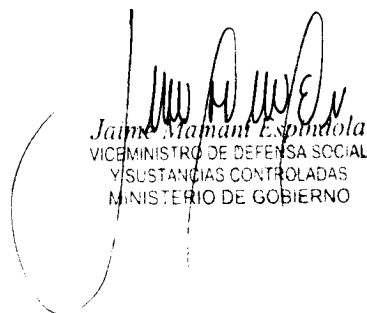 Jaime Mamani Espindola
VICEMINISTRO DE DEFENSA SOCIAL
Y SUSTANCIAS CONTROLADAS
MINISTERIO DE GOBIERNO